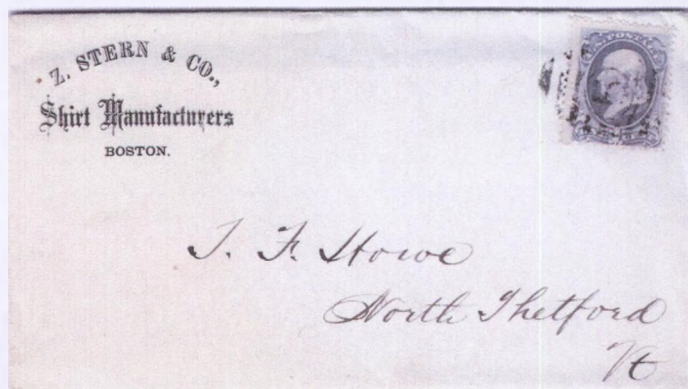 Z. STERN & CO.,
Shirt Manufacturers
BOSTON.
U.S. POSTAGE
J. F. Howe
North Thetford
Vt